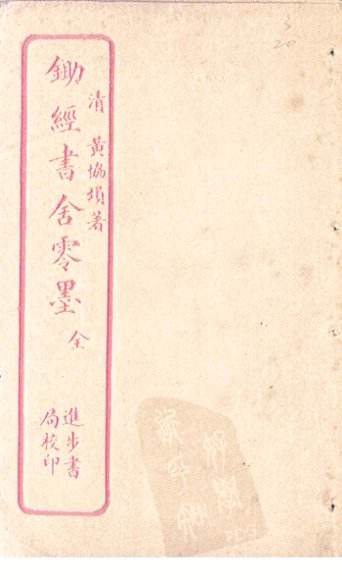 清 黃協塤著
鋤經書舍零墨 全
進步書
局校印
3
20
PDG